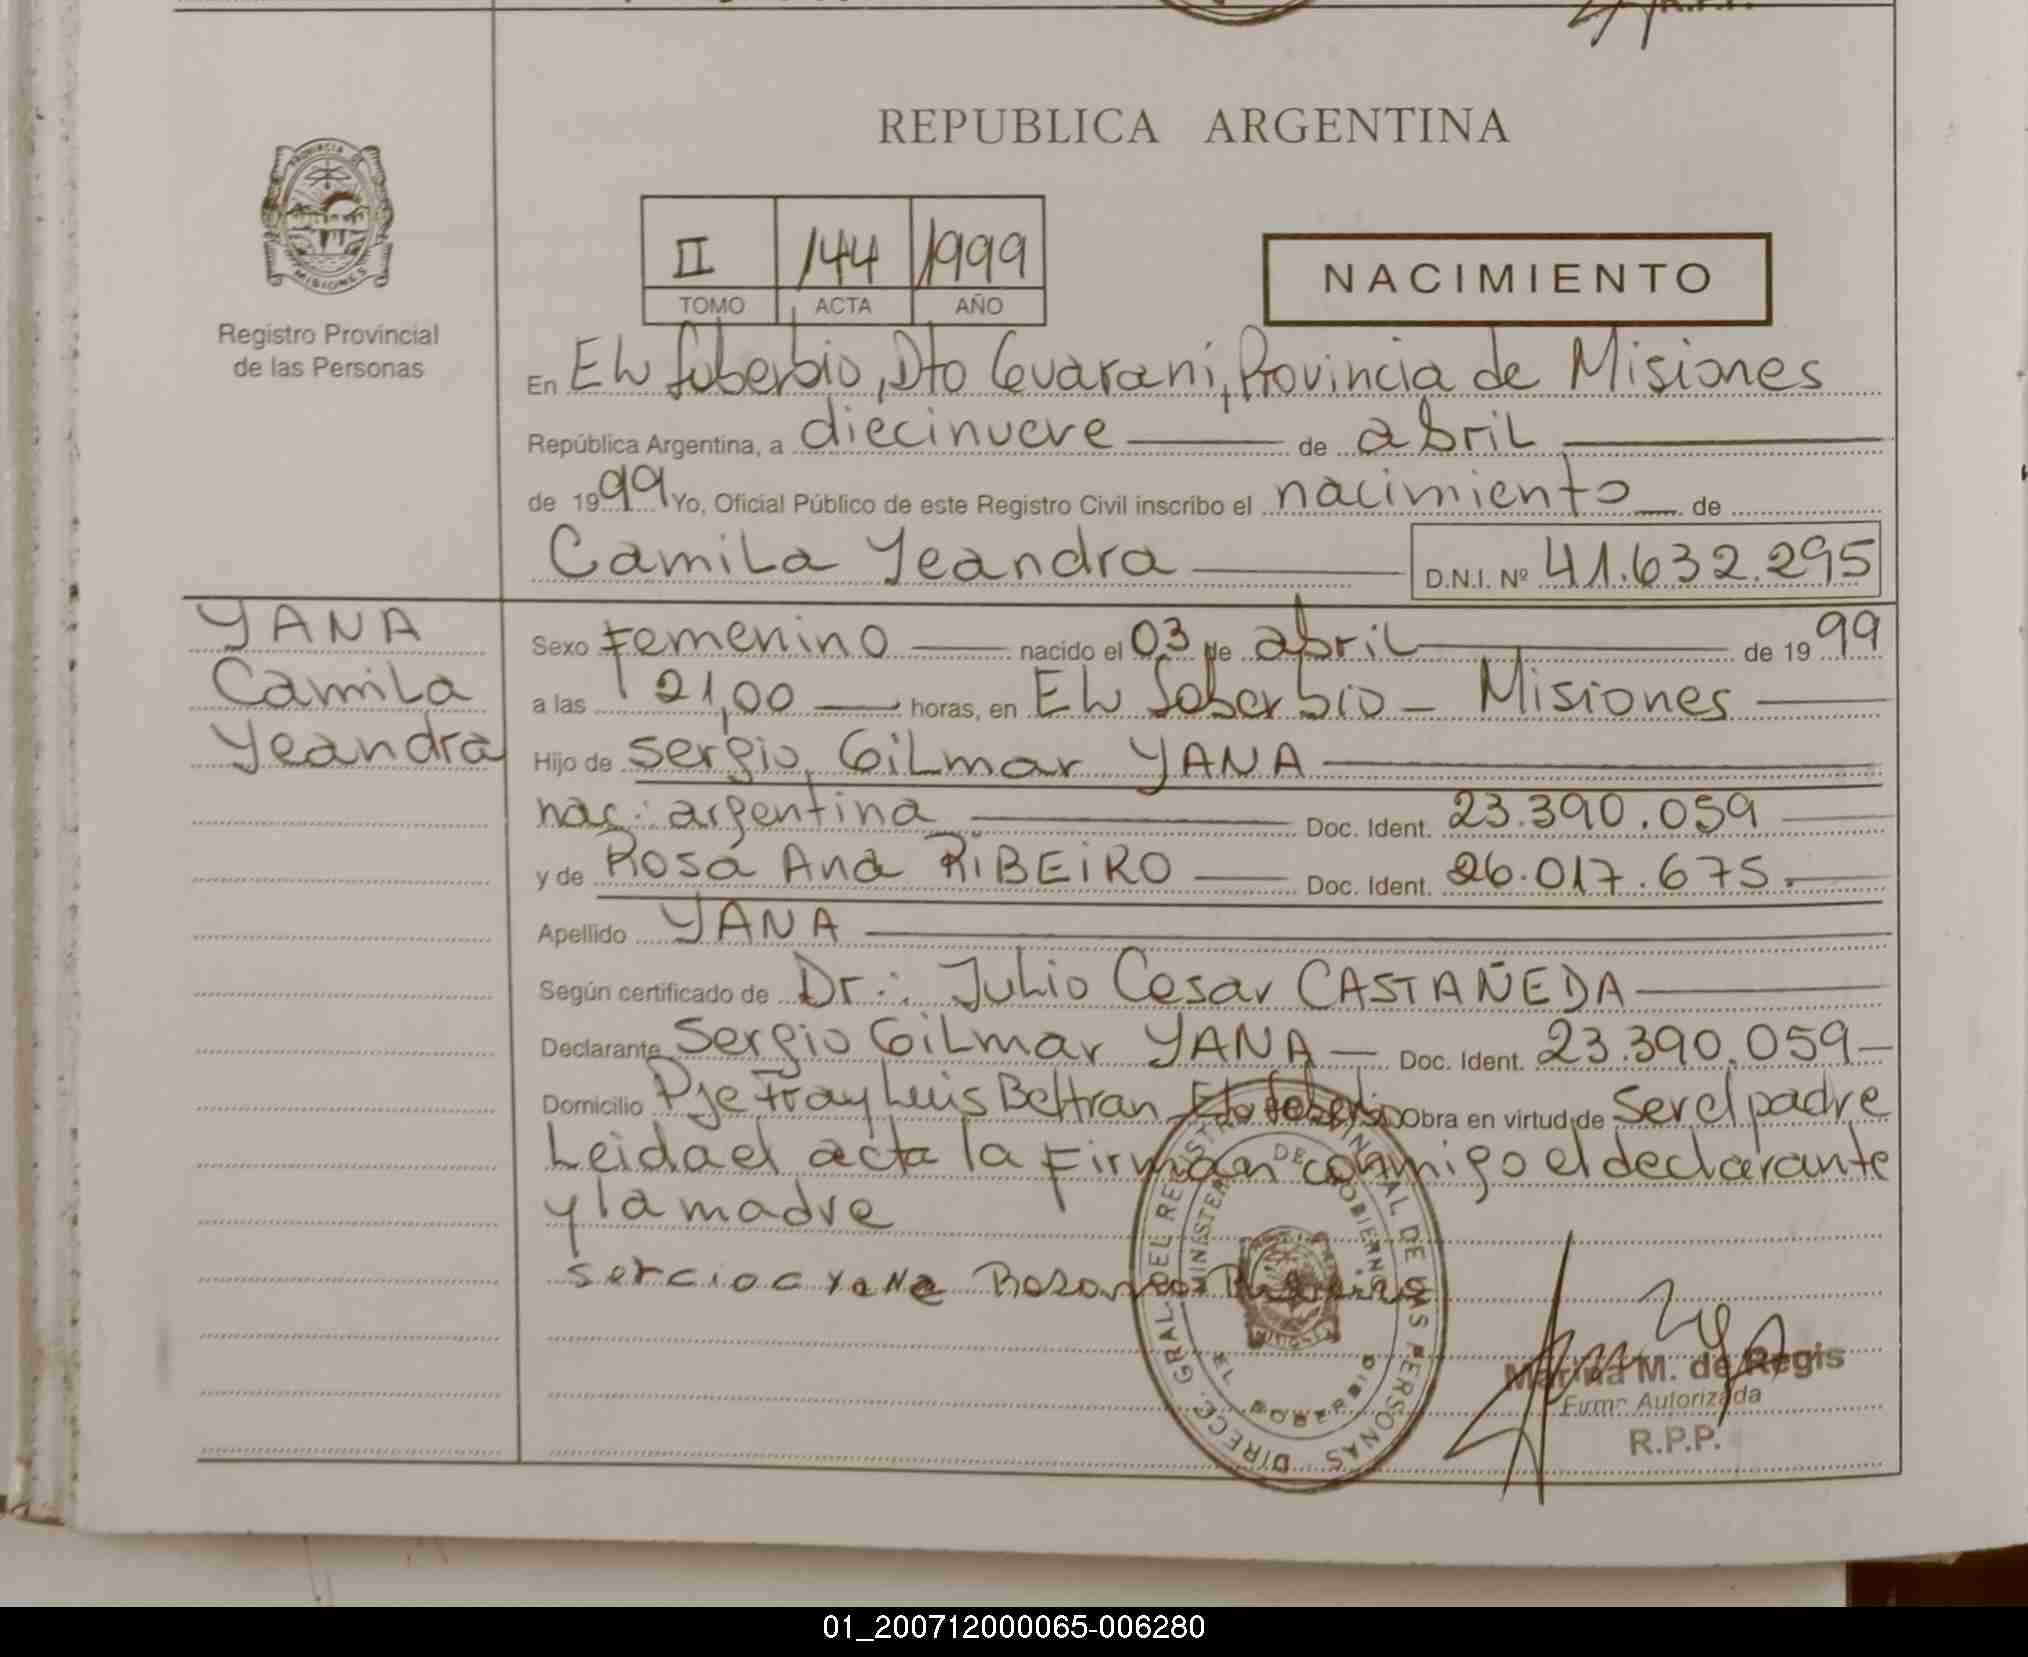 REPUBLICA ARGENTINA
PROVINCIA DE
MISIONES
Registro Provincial
de las Personas
II 144 1999
TOMO ACTA AÑO
NACIMIENTO
En EL Soberbio, Dto Guaraní, Provincia de Misiones
República Argentina, a diecinueve de abril
de 1999 Yo, Oficial Público de este Registro Civil inscribo el nacimiento de
Camila Yeandra D.N.I. Nº 41.632.295
YANA
Camila
Yeandra
Sexo Femenino nacido el 03 de abril de 1999
a las 21,00 horas, en EL Soberbio - Misiones
Hijo de Sergio Gilmar YANA
nac: argentina Doc. Ident. 23.390.059
y de Rosa Ana RIBEIRO Doc. Ident. 26.017.675.
Apellido YANA
Según certificado de Dr.: Julio Cesar CASTAÑEDA
Declarante Sergio Gilmar YANA Doc. Ident. 23.390.059
Domicilio Pje Fray Luis Beltran EL Soberbio Obra en virtud de ser el padre
Leida el acta la Firman conmigo el declarante
y la madre
sergio g yana
DIRECC. GRAL DEL REGISTRO PROVINCIAL DE LAS PERSONAS
MINISTERIO DE GOBIERNO
EL SOBERBIO
Marina M. de Regis
Firma Autorizada
R.P.P.
01_200712000065-006280